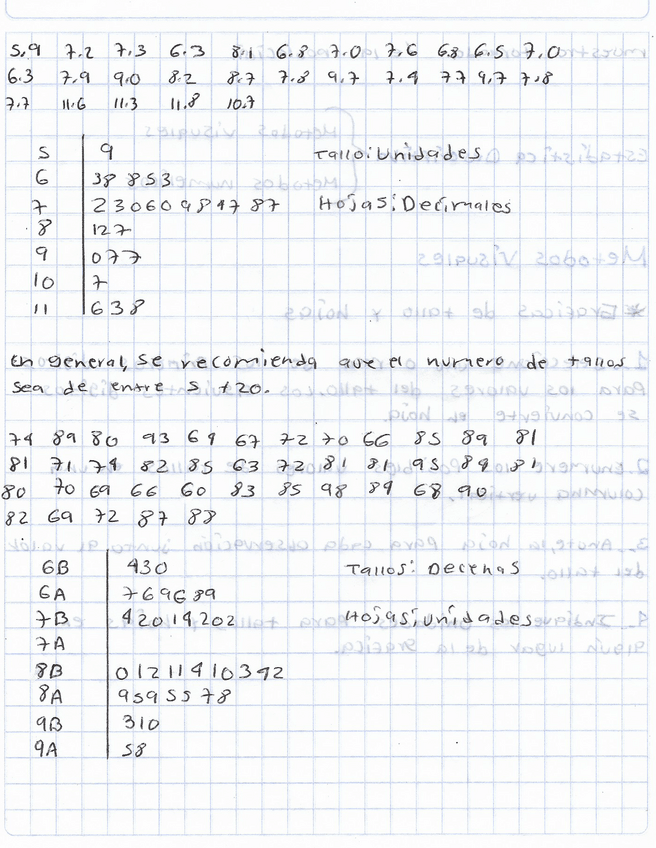 5.9 7.2 7.3 6.3 8.1 6.8 7.0 7.6 6.8 6.5 7.0
6.3 7.9 9.0 8.2 8.7 7.8 9.7 7.4 7.7 9.7 7.8
7.7 11.6 11.3 11.8 10.7
5 | 9 Tallo: Unidades
6 | 38 853
7 | 23060984787 Hojas: Decimales
8 | 127
9 | 077
10 | 7
11 | 638
En general, se recomienda que el numero de tallos
sea de entre 5 y 20.
74 89 80 93 64 67 72 70 66 85 89 81
81 71 74 82 85 63 72 81 81 95 84 81
80 70 69 66 60 83 85 98 84 68 90
82 69 72 87 88
6B | 430 Tallos: Decenas
6A | 769689
7B | 42014202 Hojas: Unidades
7A |
8B | 01211410342
8A | 9595578
9B | 310
9A | 58